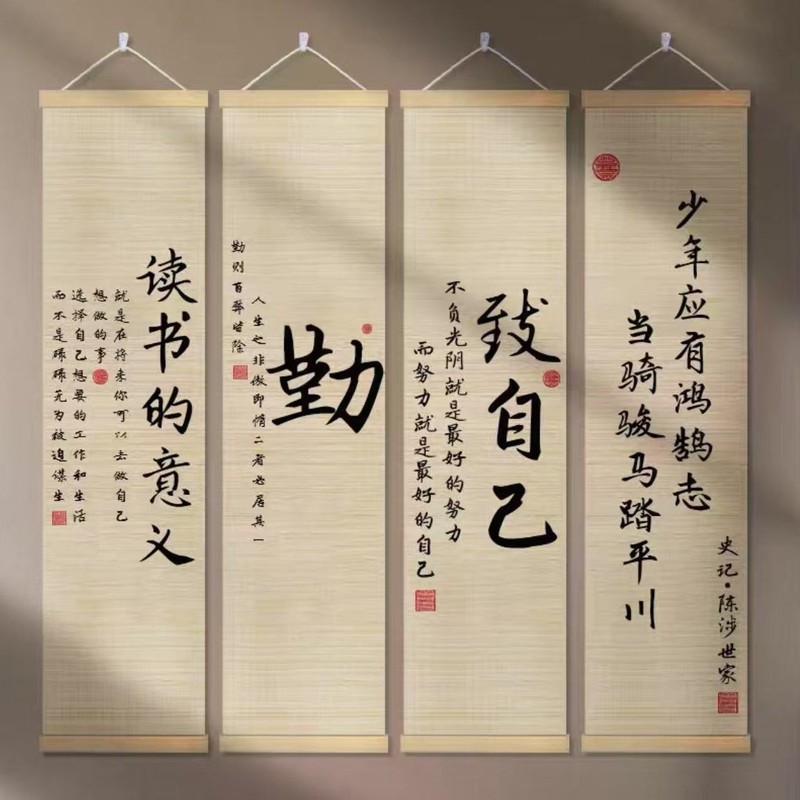 读书的意义
就是在将来你可以去做自己
想做的事
选择自己想要的工作和生活
而不是碌碌无为被迫谋生
勤
人生之非傲即惰二者必居其一
勤则百弊皆除
致自己
不负光阴就是最好的努力
而努力就是最好的自己
少年应有鸿鹄志
当骑骏马踏平川
史记·陈涉世家